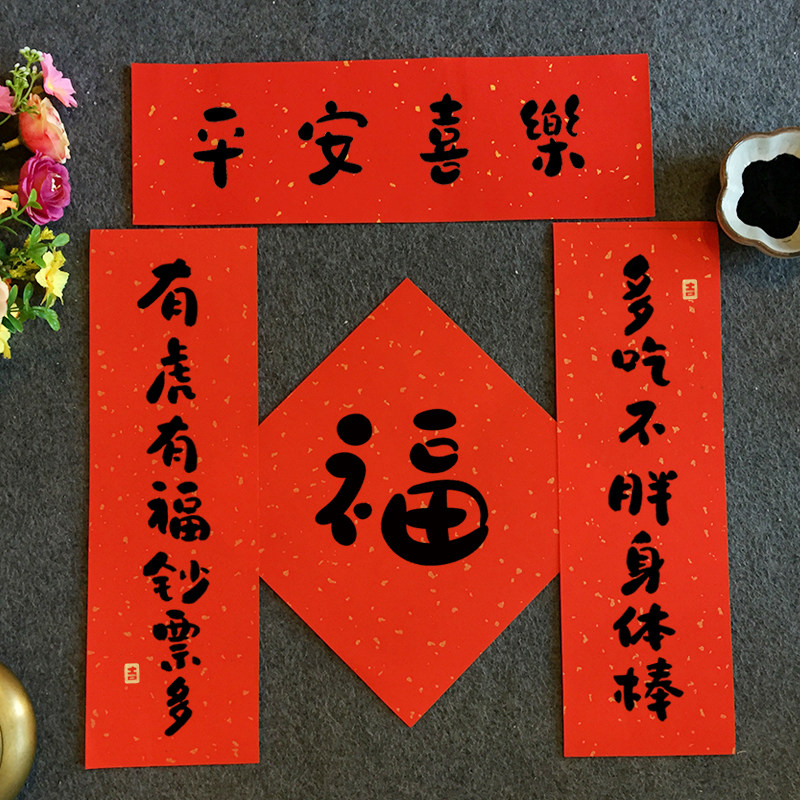 平安喜樂
多吃不胖身体棒
吉
有虎有福钞票多
吉
福